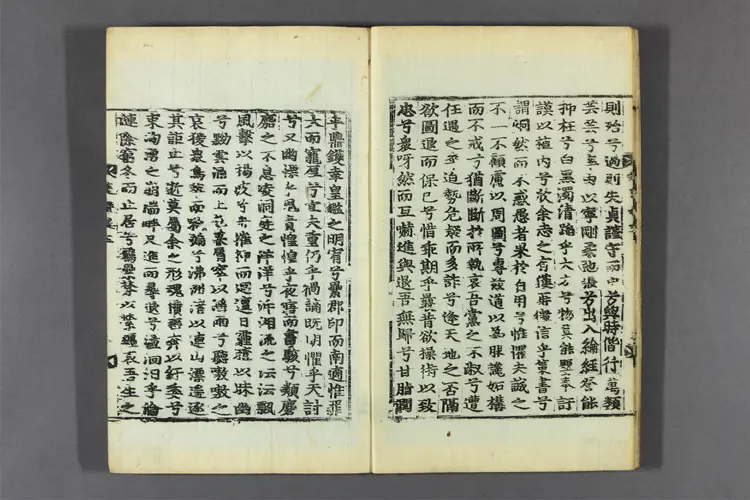 則殆兮過則失貞謹守而中兮與時偕行萬類
芸芸兮率由以寧剛柔弛張兮出入綸經登能
抑枉兮白黑濁清蹈乎大方兮物莫能嬰奉訏
謨以植内兮欣余志之有獲再徵信乎策書兮
謂炯然而不惑愚者果於自用兮惟懼夫誠之
不一不顧慮以周圖兮專兹道以為服讒妬構
而不戒兮猶斷斷於所執哀吾黨之不淑兮遭
任遇之卒迫勢危疑而多詐兮逢天地之否隔
欲圖退而保己兮悼乖期乎曩昔欲操術以致
忠兮衆呀然而互嚇進與退吾無歸兮甘脂潤
乎鼎鑊幸皇鑑之明宥兮纍郡印而南適惟罪
大而寵厚兮宜夫重仍乎禍謫既明懼乎天討
兮又幽慄乎鬼責惶惶乎夜寤而晝駭兮類麏
麚之不息凌洞庭之洋洋兮泝湘流之沄沄飄
風擊以揚波兮舟摧抑而迴邅日霾曀以昧幽
兮黝雲涌而上屯暮屑窣以淫雨兮聽嗷嗷之
哀猨衆鳥萃而啾號兮沸洲渚以連山漂遥逐
其詎止兮逝莫屬余之形魂攢巒奔以紆委兮
束洶湧之崩湍畔尺進而尋退兮盪洄汩乎淪
漣際窮冬而止居兮羈纍棼以縈纏哀吾生之